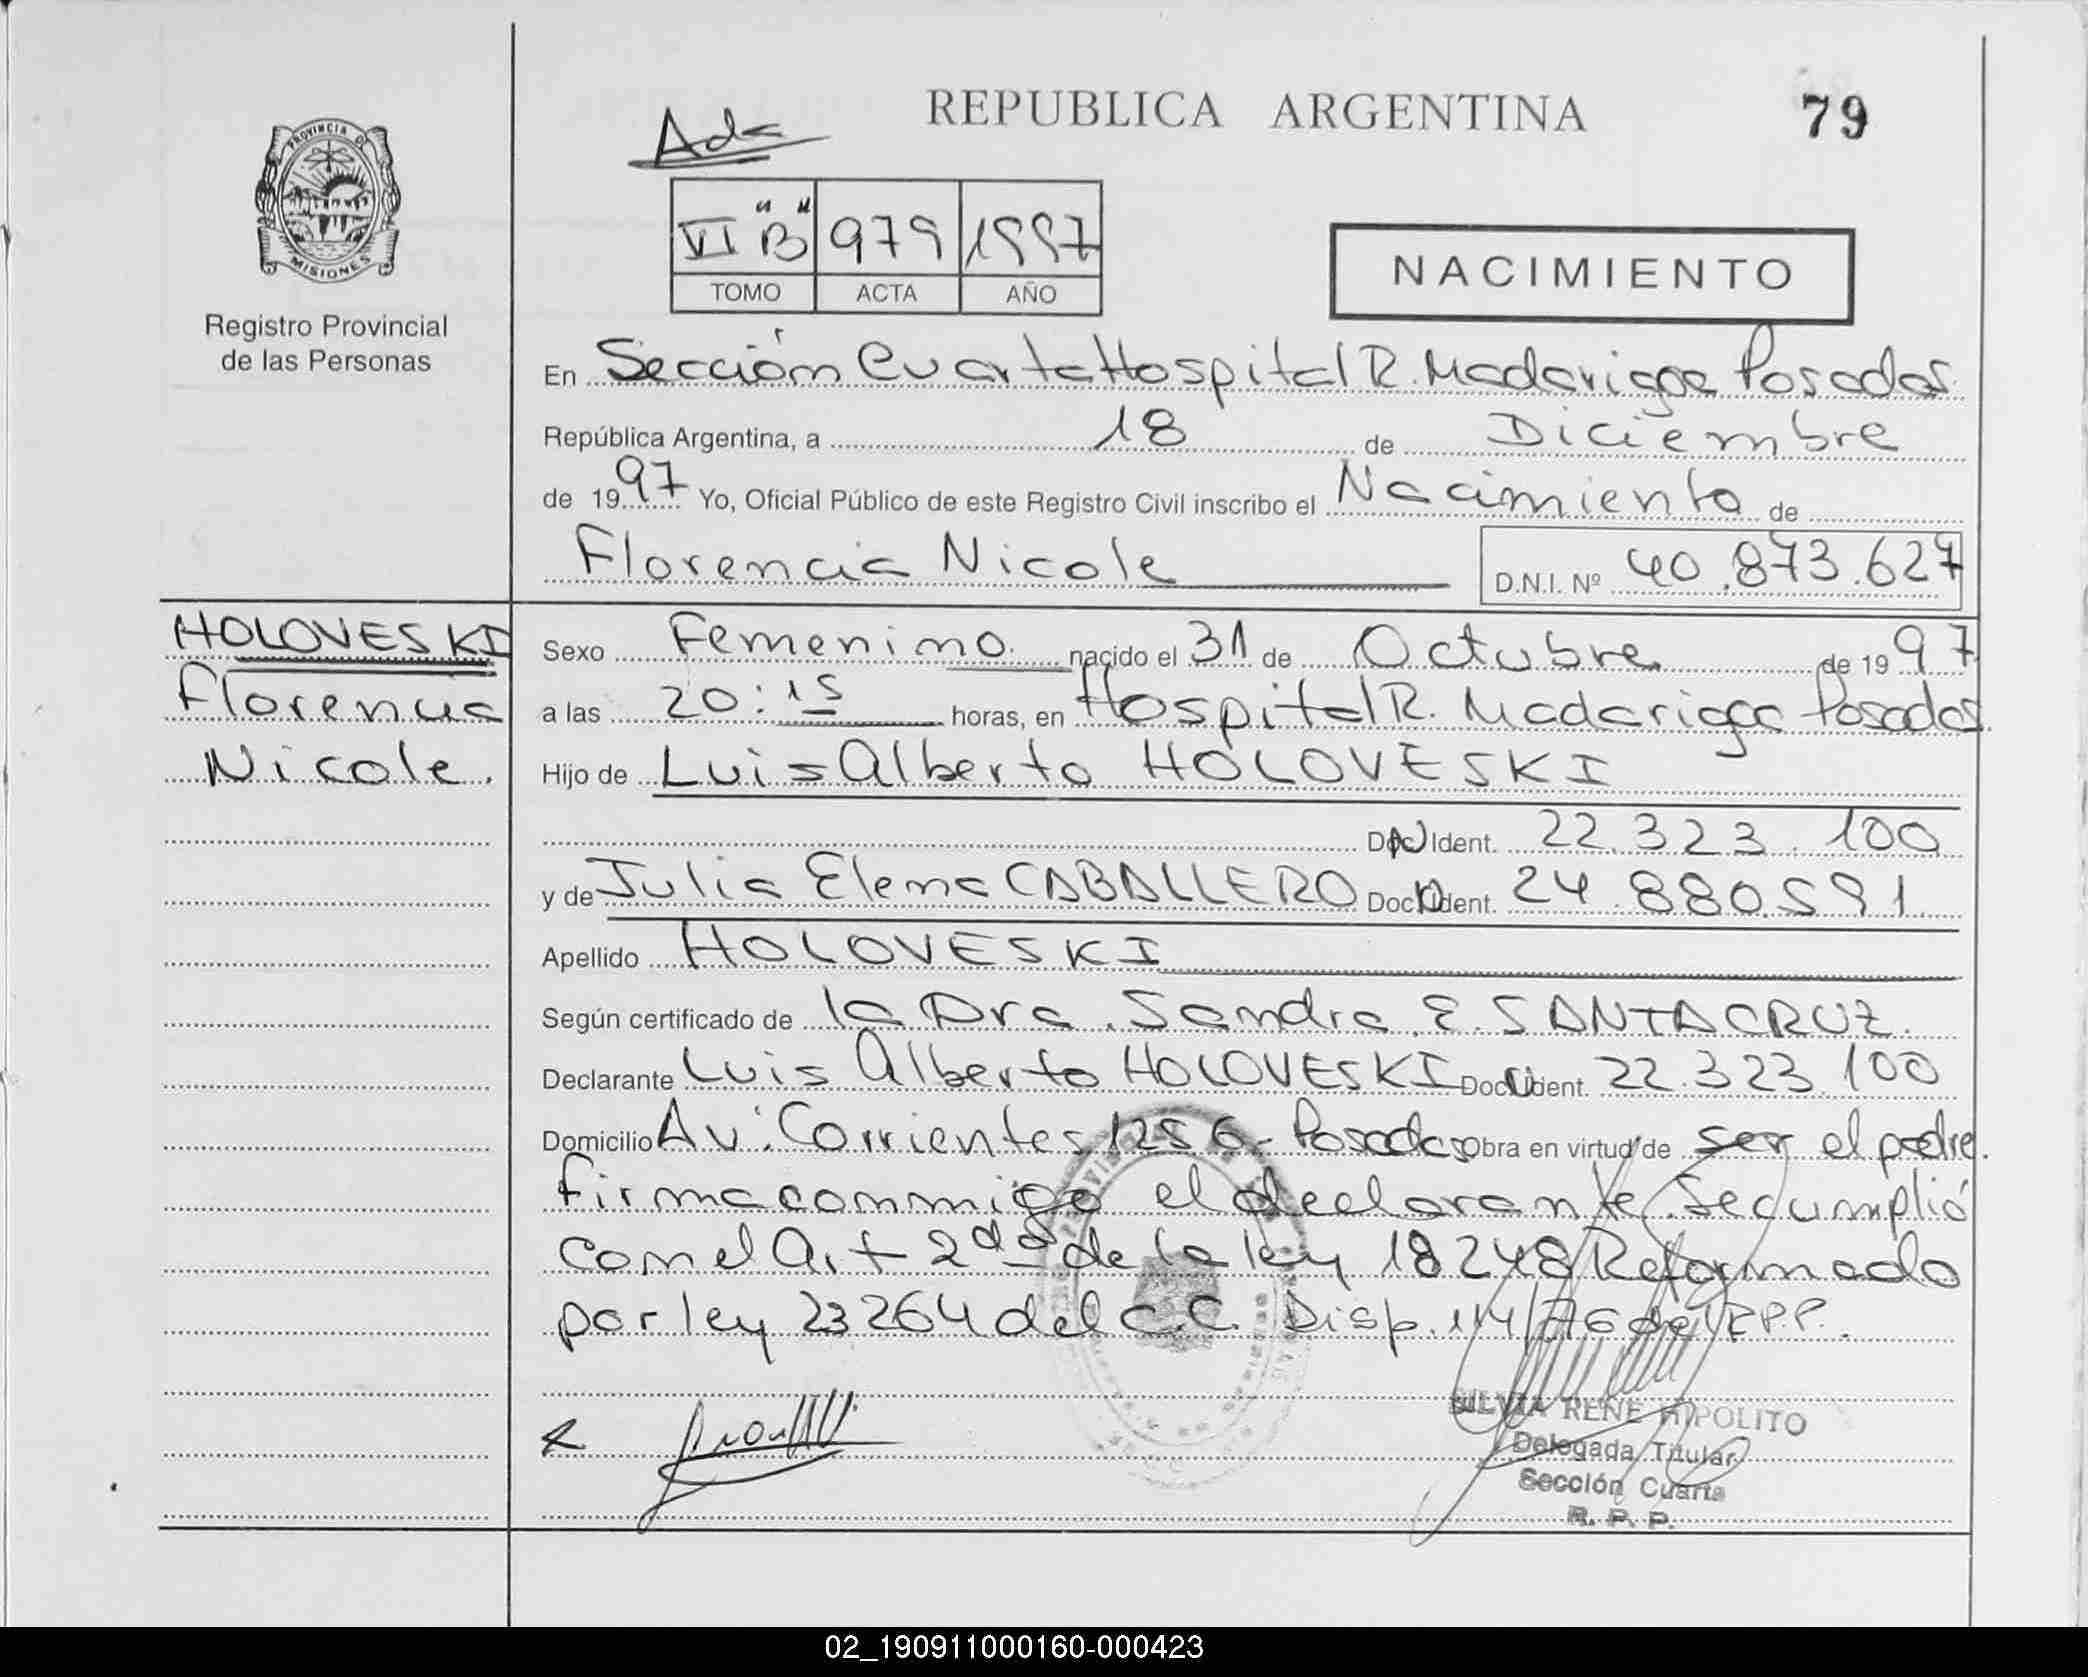 REPUBLICA ARGENTINA
79
PROVINCIA DE
MISIONES
Registro Provincial
de las Personas
VI "B" 979 1997
TOMO ACTA AÑO
NACIMIENTO
En Sección Cuarta Hospital R. Madariaga Posadas
República Argentina, a 18 de Diciembre
de 1997 Yo, Oficial Público de este Registro Civil inscribo el Nacimiento de
Florencia Nicole D.N.I. Nº 40.873.627
HOLOVESKI
Florencia
Nicole.
Sexo Femenino nacido el 31 de Octubre de 1997
a las 20:15 horas, en Hospital R. Madariaga Posadas
Hijo de Luis Alberto HOLOVESKI
Doc. Ident. 22.323.100
y de Julia Elena CABALLERO Doc. Ident. 24.880.591
Apellido HOLOVESKI
Según certificado de la Dra. Sandra E. SANTACRUZ.
Declarante Luis Alberto HOLOVESKI Doc. Ident. 22.323.100
Domicilio Av. Corrientes 1256 - Posadas Obra en virtud de ser el padre.
firma conmigo el declarante. Se cumplió
con el Art 2do de la ley 18248 Reformado
por ley 23264 del C.C. Disp. 114/76 del RPP.
SILVIA RENE HIPOLITO
Delegada Titular
Sección Cuarta
R. P. P.
02_190911000160-000423